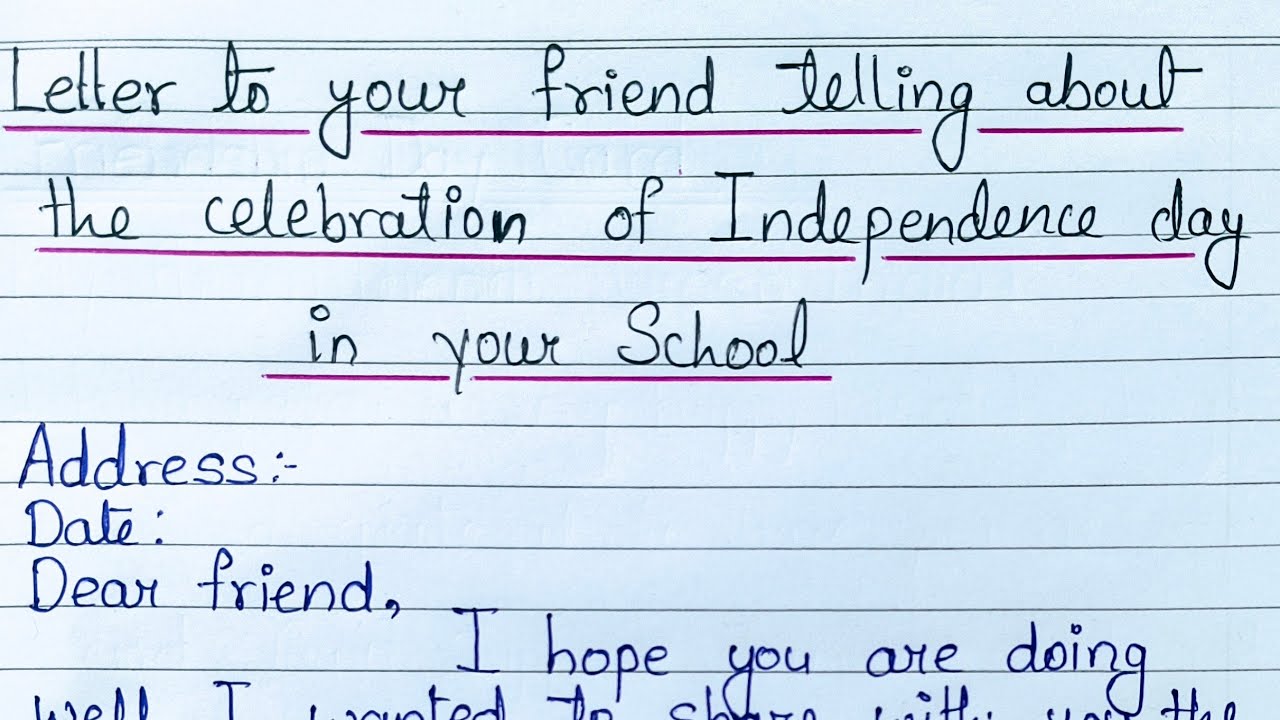 Letter to your friend telling about
the celebration of Independence day
in your School
Address:-
Date:
Dear friend,
I hope you are doing
well I wanted to share with you the